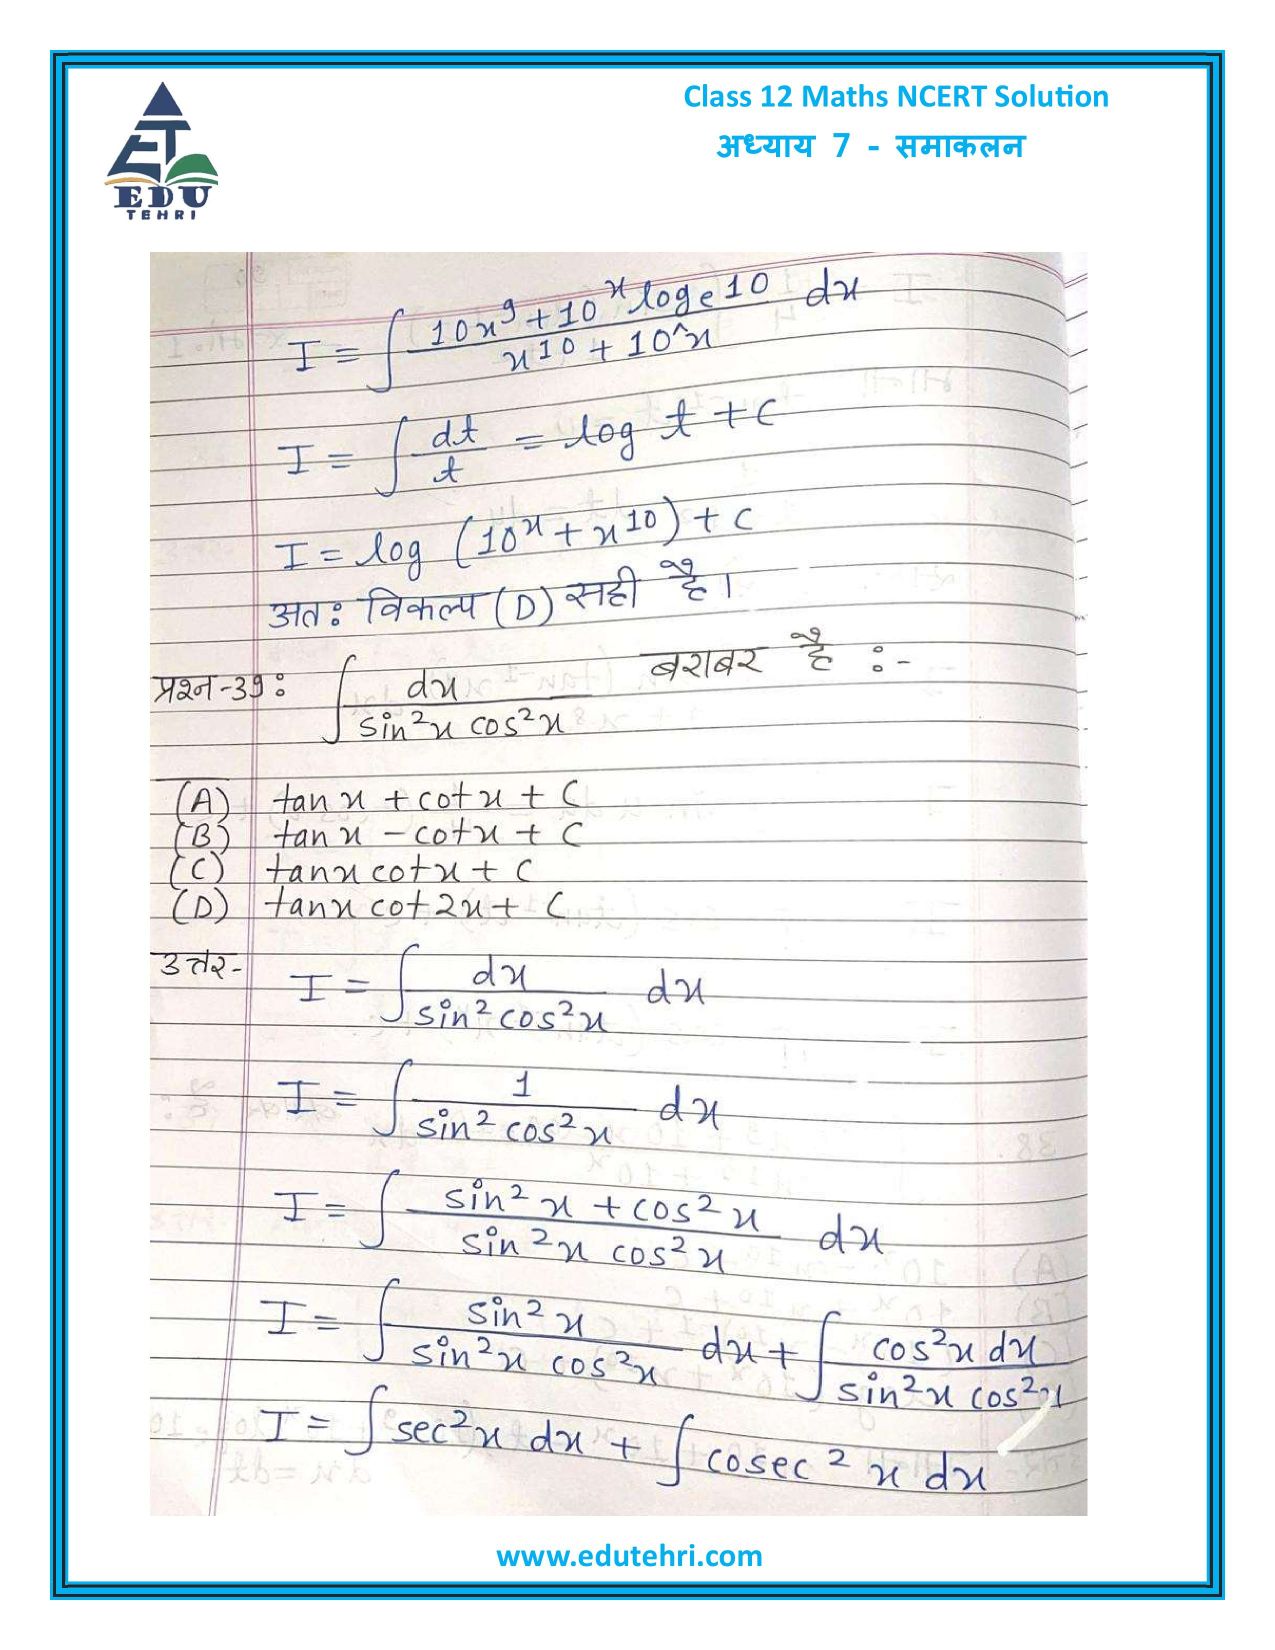 Class 12 Maths NCERT Solution
अध्याय 7 - समाकलन
EDU
TEHRI
I = ∫ (10x⁹ + 10ˣ logₑ10) / (x¹⁰ + 10^x) dx
I = ∫ dt/t = log t + C
I = log (10ˣ + x¹⁰) + C
अतः विकल्प (D) सही है।
प्रश्न-39: ∫ dx / (sin²x cos²x) बराबर है :-
(A) tan x + cot x + C
(B) tan x - cot x + C
(C) tan x cot x + C
(D) tan x cot 2x + C
उत्तर- I = ∫ dx / (sin² cos²x) dx
I = ∫ 1 / (sin² cos²x) dx
I = ∫ (sin²x + cos²x) / (sin²x cos²x) dx
I = ∫ sin²x / (sin²x cos²x) dx + ∫ cos²x dx / (sin²x cos²x)
I = ∫ sec²x dx + ∫ cosec²x dx
www.edutehri.com